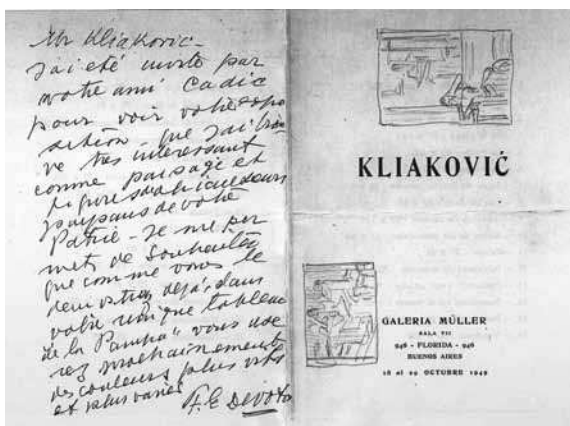 Mr Kliakovic-
J'ai eté invité par
votre ami Cadic
pour voir votre expo
sition, que j'ai trou
vé très interessant
comme paisage et
figures d'agriculteurs
paysans de votre
Patrie - Je me per
mets de souhaiter
que comme vous le
demostrez dejà, dans
votre unique tableau
de la "Pampa" vous use
rez prochainement
des couleurs plus vifs
et plus variés
F. E. Devoto
KLIAKOVIĆ
GALERIA MÜLLER
SALA VII
946 - FLORIDA - 946
BUENOS AIRES
18 al 29 OCTUBRE 1949